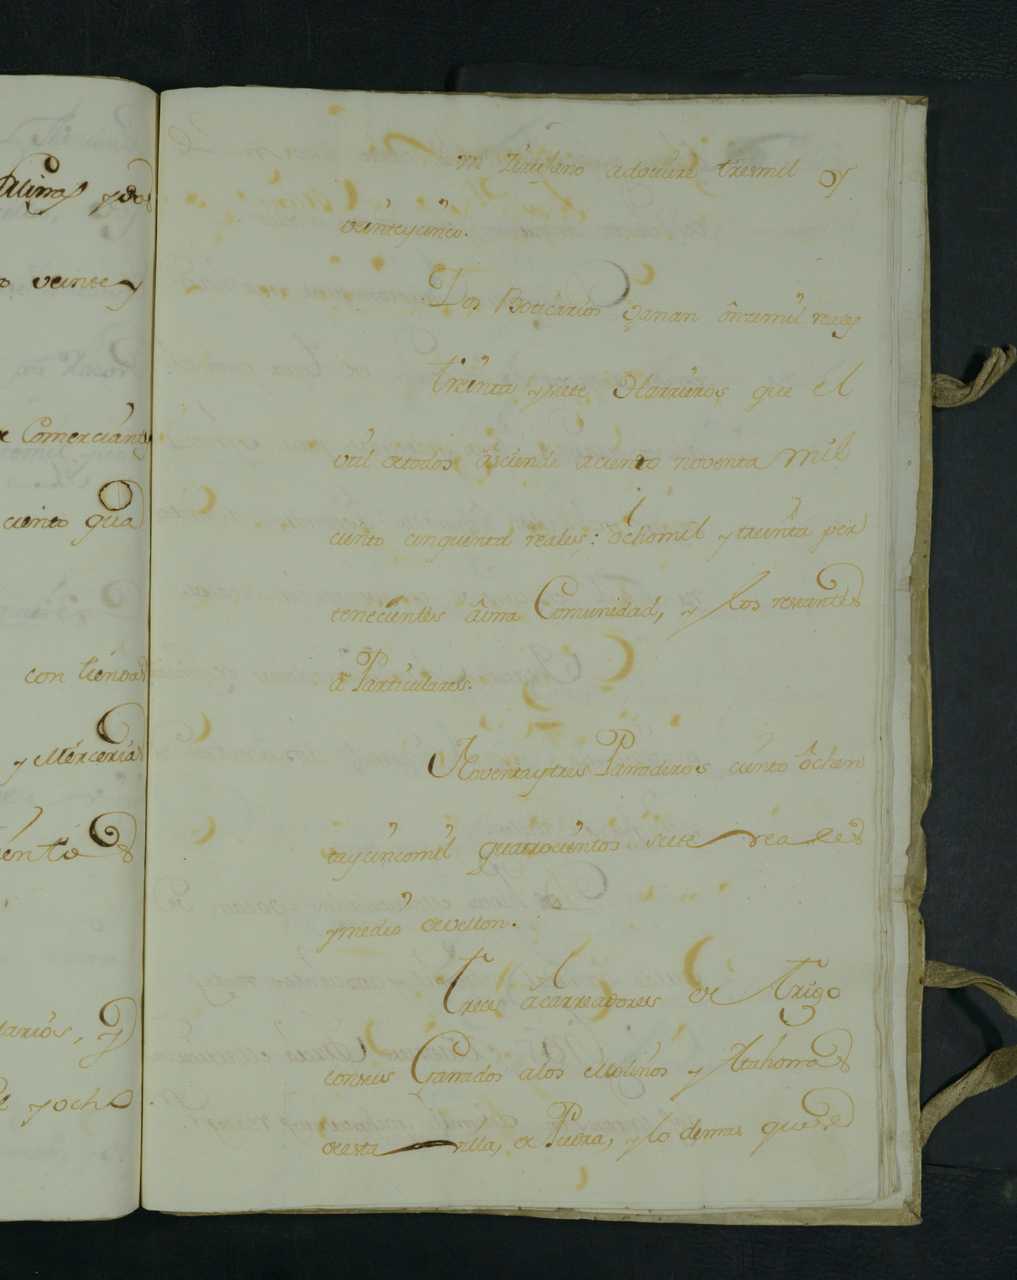 Alimo, y dos
o veinte y
Comerciant
ciento qua
con tienda
y Merceria
enta
larios, q
y ocho
un Zirujano adquiere tresmil y
veinteycinco.
Dos Boticarios Ganan ôncemil reas
treinta y siete Harrieros que el
vtil de todos asciende aciento noventa mil
ciento cinquenta reales: ôchomil y treinta per
tenecientes âuna Comunidad, y los restantes
â Particulares.
Noventaytres Panaderos ciento ôchen
taycincomil quatrocientos siete reales
y medio de vellon.
Trece acarreadores de Trigo
conseis Ganados alos Molinos y Atahonas
de esta villa, de Piedra, y lo demas que se